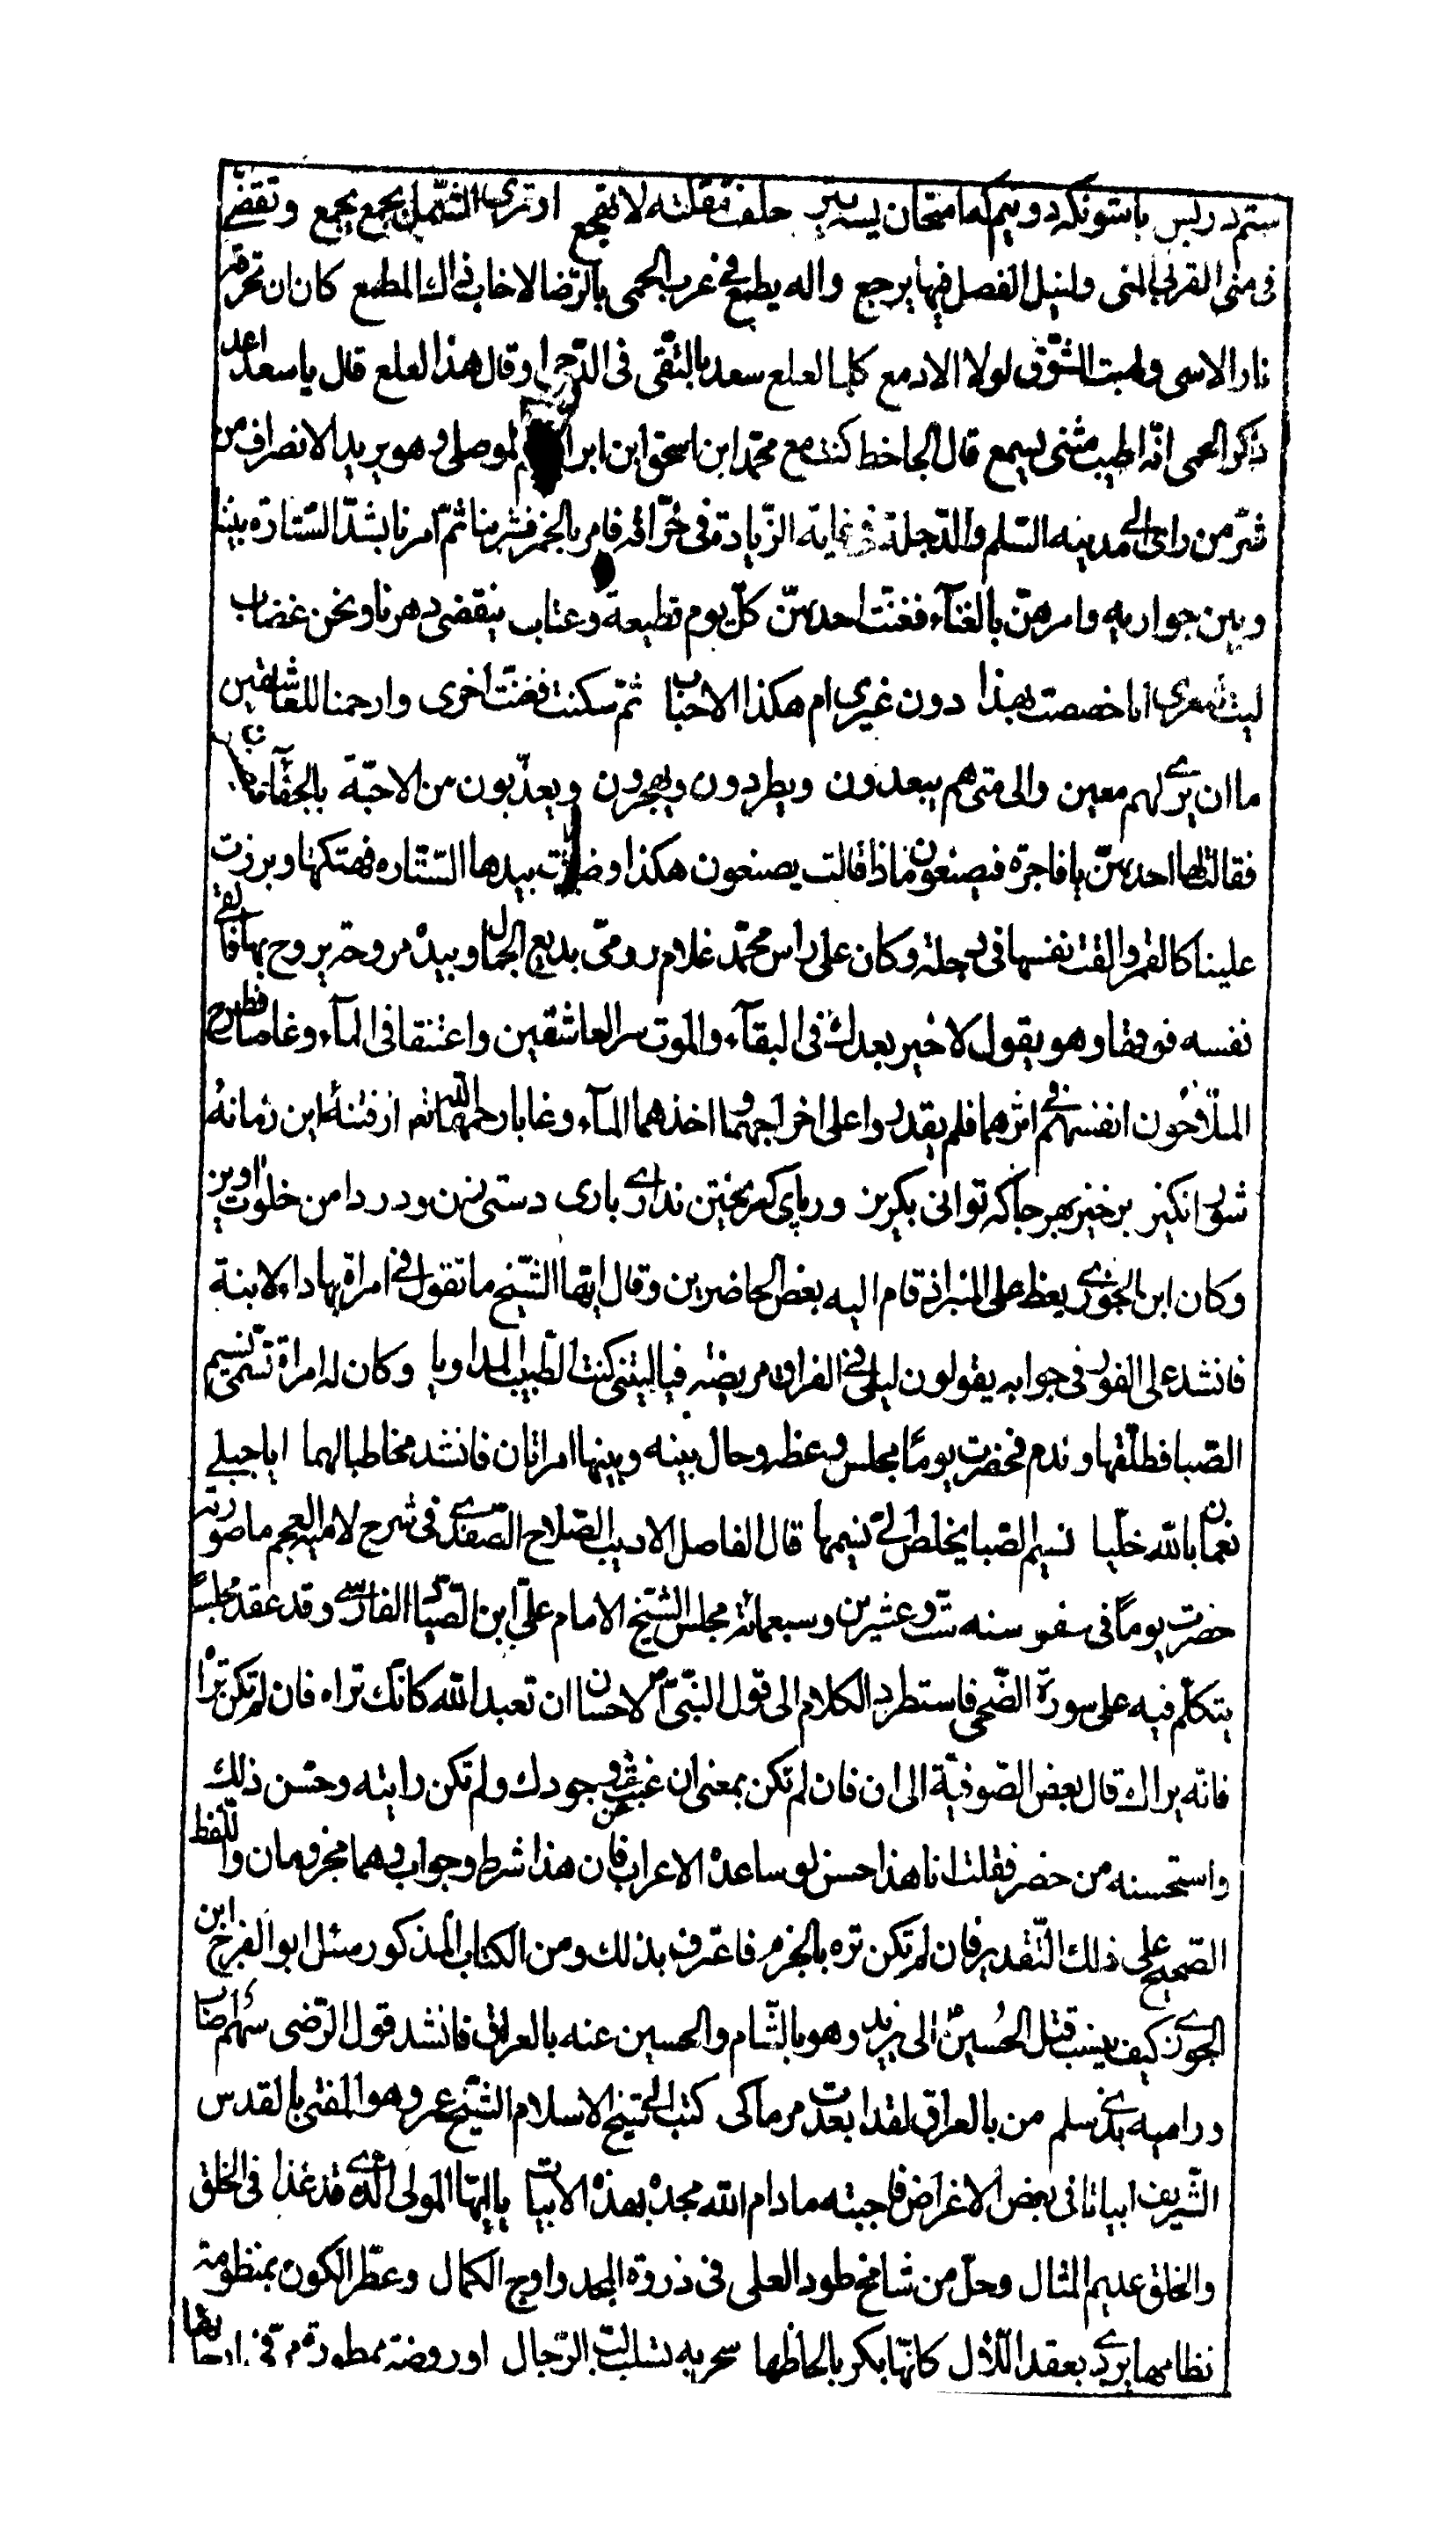 ستم در پس با ستونکه دو نیم که امتحان پسر حلفت مقلته لا تهجع او تری الشمل بجمع یجمع وتقضی
فی منی القرب المنی ولنیل الفصل فیها یرجع واله یطمع فی عرب الحمی بالرضا لا خاب ذاك المطمع کان ان تحرقه
نار الاسی ولهیب الشوق لولا الادمع کلما لعلع سعد بالنقی فی الدجی او قال هذا لعلع قال یا سعد اعد
ذکر الحمی انه اطیب مثنی یسمع قال الجاحظ کنت مع محمد ابن اسحق ابن ابراهیم الموصلی وهو یرید الانصراف من
سر من رای الی مدینه السلم والدجلة فی غایة الزیادة فی حراقه فامر بالخمر فشربنا ثم امرنا بشد الستارة بیننا
وبین جواریه وامرهن بالغنآء فغنت احدیهن کل یوم قطیعة وعتاب ینقضی دهرنا ونحن غضاب
لیت شعری انا خصصت بهذا دون غیری ام هکذا الاحباب ثم سکنت فغنت اخری وارحمنا للعاشقین
ما ان یری لهم معین والی متی هم یبعدون ویطردون ویهجرون ویعذبون من الاحبة بالجفآ
فقالت لها احدیهن یا فاجرة فیصنعون ماذا قالت یصنعون هکذا وضربت بیدها الستاره فهتکتها وبرزت
علینا کالقمر والقت نفسها فی دجلة وکان علی راس محمد غلام رومی بدیع الجمال وبیده مروحة یروح بها فالقی
نفسه فوقها وهو یقول لا خیر بعدك فی البقآء والموت ستر العاشقین واعتنقا فی المآء وغاصا فطرح
الملاحون انفسهم فی اثرهما فلم یقدروا علی اخراجهما واخذهما المآء وغابا رحمهما الله تم از فتنهٔ این زمانهٔ
شور انکیز برخیز بهر جا که توانی بکریز ور پای کریختن نداری باری دستی زن ودر دامن خلوت آویز
وکان ابن الجوزی یعظ علی المنبر اذ قام الیه بعض الحاضرین وقال ایها الشیخ ما تقول فی امراة بها داء الابنة
فانشد علی الفور فی جوابه یقولون لیلی فی العراق مریضه فیا لیتنی کنت الطبیب المداویا وکان له امراة تسمی نسیم
الصبا فطلقها وندم فحضرت یوما مجلس وعظه وحال بینه وبینها امراتان فانشد مخاطبا لهما ایا جبلی
نعمان بالله خلیا نسیم الصبا یخلص الی نسیمها قال الفاضل الادیب الصلاح الصفدی فی شرح لامیة العجم ما صورته
حضرت یوما فی صفر سنه ست وعشرین وسبعمائة مجلس الشیخ الامام علی ابن الصیاد الفارسی وقد عقد مجلسا
یتکلم فیه علی سورة الضحی فاستطرد الکلام الی قول النبی ص الاحسان ان تعبد الله کانك تراه فان لم تکن تراه
فانه یراك قال بعض الصوفیة الی ان فان لم تکن بمعنی ان غبت عن وجودك ولم تکن رایته وحسن ذلك
واستحسنه من حضر فقلت انا هذا حسن لو ساعده الاعراب فان هذا شرط وجواب وهما مجزومان واللفظ
الصحیح علی ذلك التقدیر فان لم تکن تره بالجزم فاعترف بذلك ومن الکتاب المذکور سئل ابو الفرج ابن
الجوزی کیف ینسب قتل الحسین الی یزید وهو بالشام والحسین عنه بالعراق فانشد قول الرضی سهم اصاب
ورامیه بذی سلم من بالعراق لقد ابعدت مرماکی کتب الی شیخ الاسلام الشیخ عمر وهو المفتی بالقدس
الشریف ابیاتا فی بعض الاغراض فاجبته ما دام الله مجده بهذه الابیات یا ایها المولی الذی قد غدا فی الخلق
والخلق عدیم المثال وحل من شامخ طود العلی فی ذروة المجد واوج الکمال وعطر الکون بمنظومة
نظامها یزری بعقد اللآل کانها بکر بالحاظها سحر به تسلب لب الرجال او روضة ممطورة